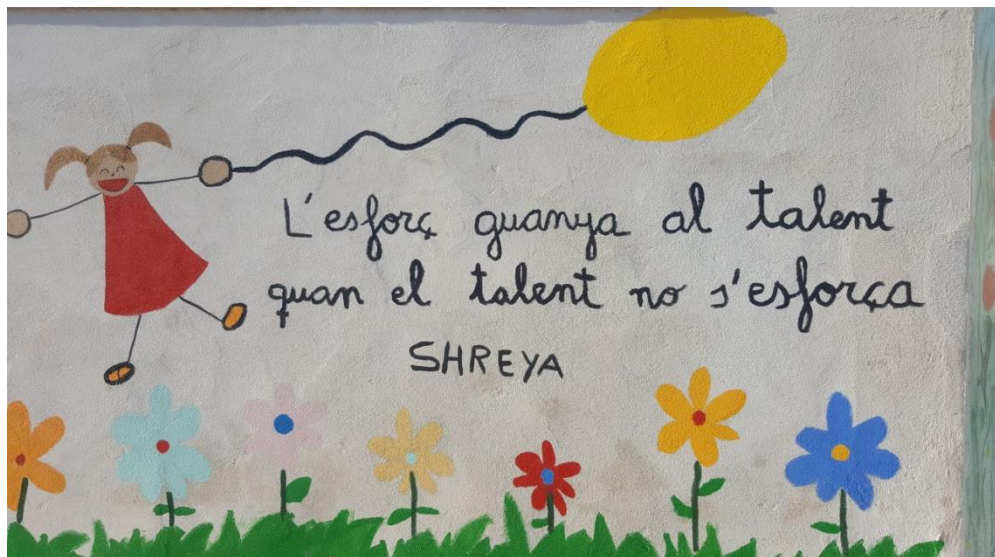 L'esforç guanya al talent
quan el talent no s'esforça
SHREYA